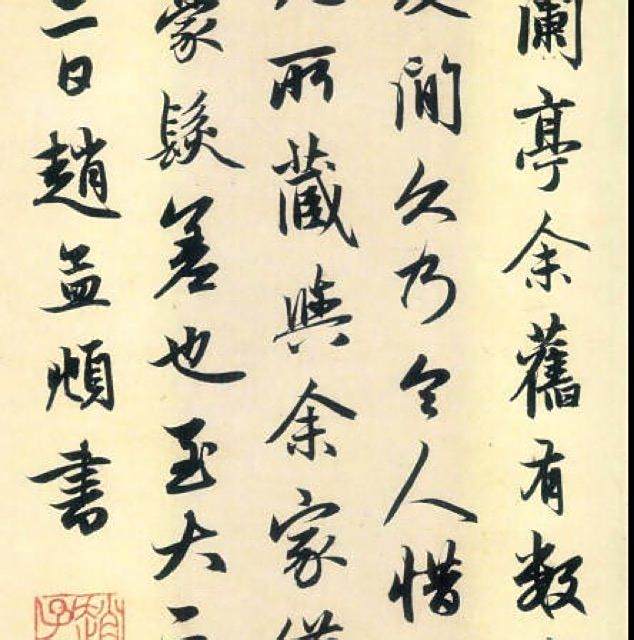 蘭亭余舊有數
間久乃令人惜
所藏與余家
豪髮差也至大
二日趙孟頫書